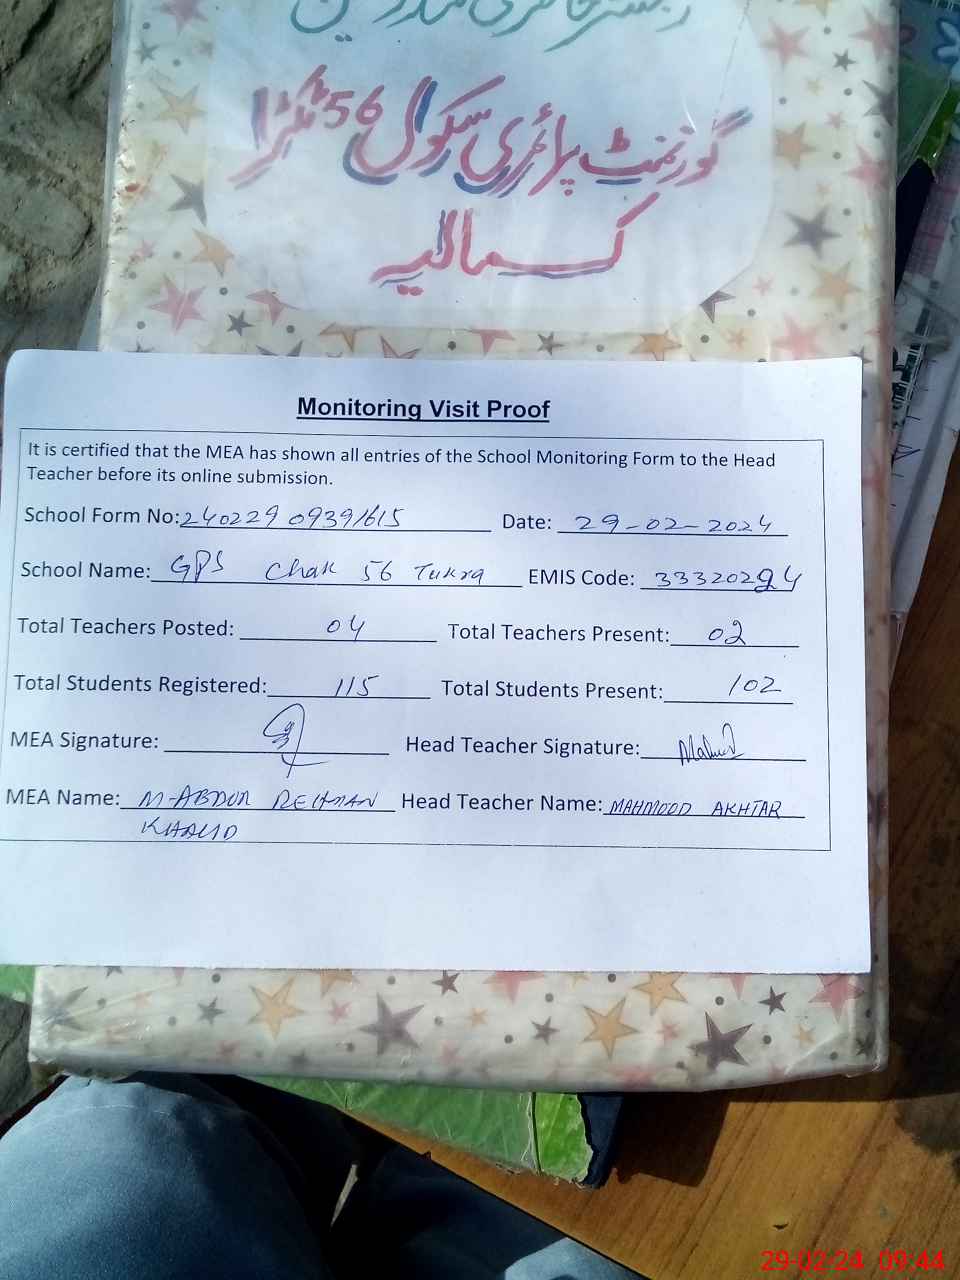 رجسٹر حاضری مدرسین
گورنمنٹ پرائمری سکول 56 ٹکڑا
کمالیہ
Monitoring Visit Proof
It is certified that the MEA has shown all entries of the School Monitoring Form to the Head
Teacher before its online submission.
School Form No: 240229 09391615 Date: 29-02-2024
School Name: GPS Chak 56 Tukra EMIS Code: 33320294
Total Teachers Posted: 04 Total Teachers Present: 02
Total Students Registered: 115 Total Students Present: 102
MEA Signature: Head Teacher Signature:
MEA Name: M-ABDUR REHMAN Head Teacher Name: MAHMOOD AKHTAR
KHALID
29-02-24 09:44